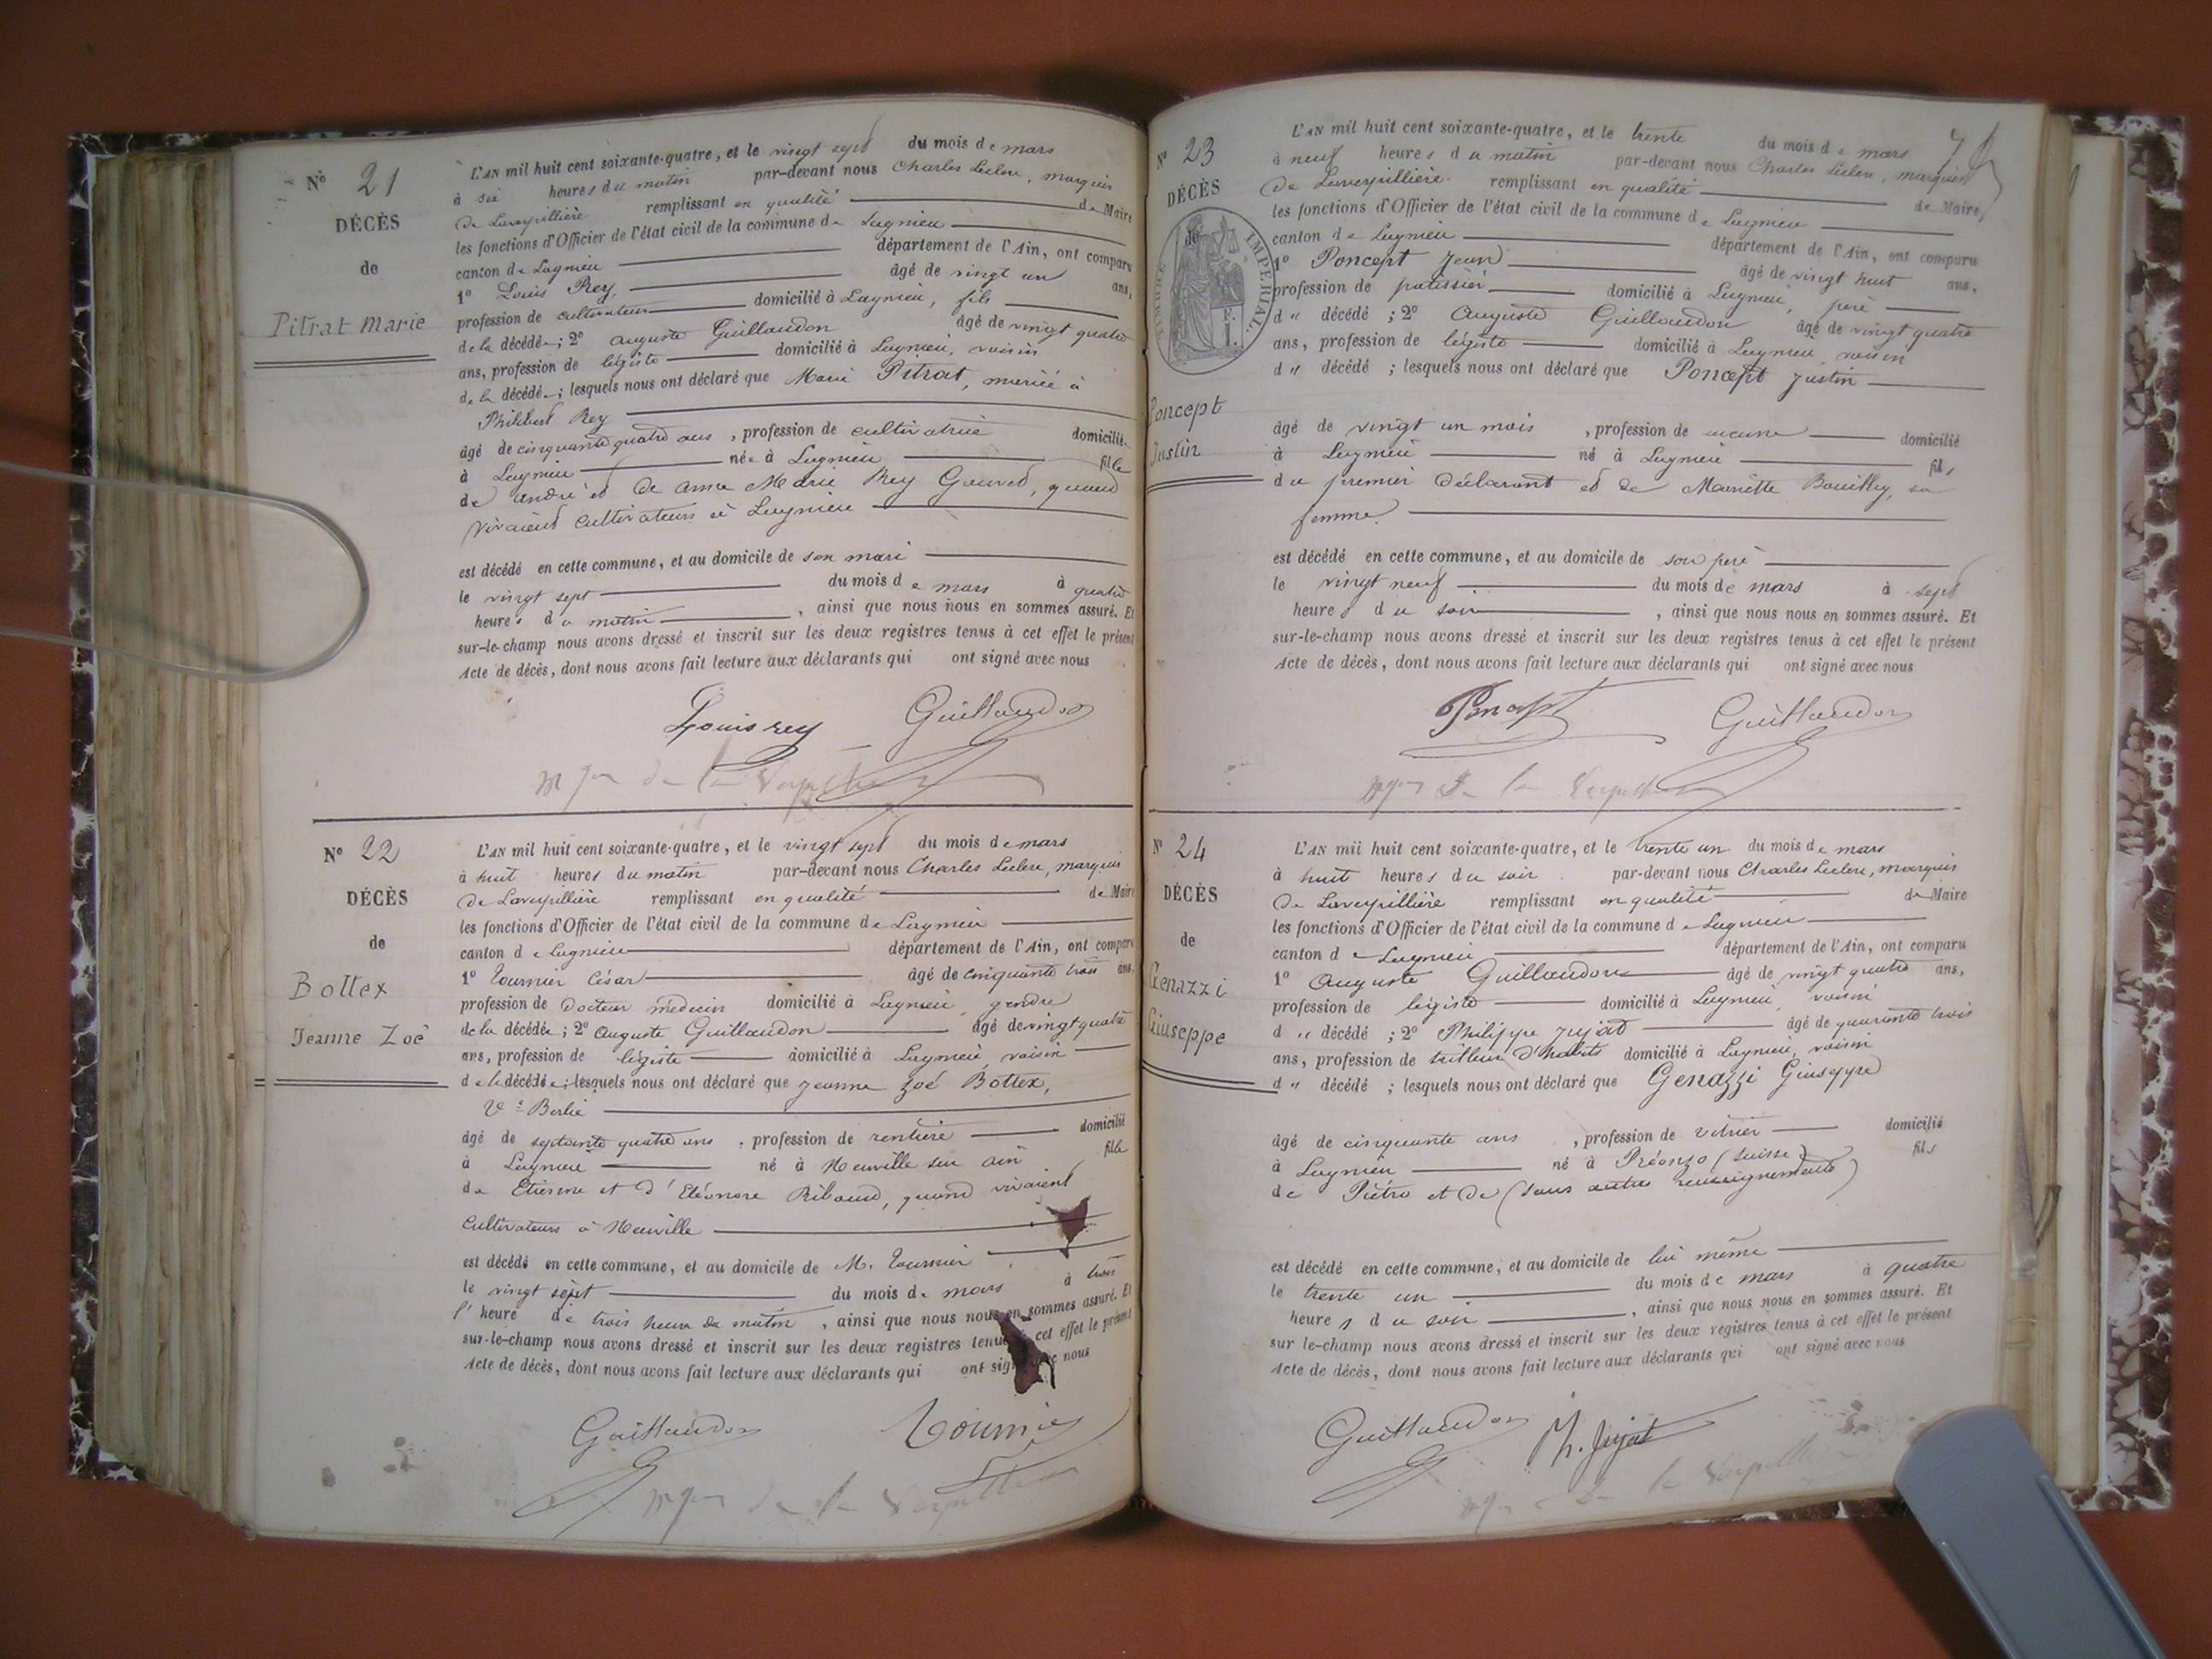 Nº 21
DÉCÈS
de
Pitrat Marie
L'AN mil huit cent soixante-quatre, et le vingt sept du mois de mars
à six heures du matin par-devant nous Charles Leclerc, marquis
de Laverpillière remplissant en qualité de Maire
les fonctions d'Officier de l'état civil de la commune de Lagnieu
canton de Lagnieu département de l'Ain, ont comparu
1º Louis Rey, âgé de vingt un ans,
profession de cultivateur domicilié à Lagnieu, fils
de la décédée; 2º Auguste Guillaudon âgé de vingt quatre
ans, profession de légiste domicilié à Lagnieu, voisin
de la décédée; lesquels nous ont déclaré que Marie Pitrat, mariée à
Philibert Rey
âgé de cinquante quatre ans, profession de cultivatrice domicilié
à Lagnieu née à Lagnieu fille
de André et de Anne Marie Rey Gouvet, quand
vivaient cultivateurs à Lagnieu
est décédé en cette commune, et au domicile de son mari
le vingt sept du mois de mars à quatre
heures du matin, ainsi que nous nous en sommes assuré. Et
sur-le-champ nous avons dressé et inscrit sur les deux registres tenus à cet effet le présent
Acte de décès, dont nous avons fait lecture aux déclarants qui ont signé avec nous
Louis rey Guillaudon
mqis de la Verpillière
Nº 22
DÉCÈS
de
Bottex
Jeanne Zoé
L'AN mil huit cent soixante-quatre, et le vingt sept du mois de mars
à huit heures du matin par-devant nous Charles Leclerc, marquis
de Laverpillière remplissant en qualité de Maire
les fonctions d'Officier de l'état civil de la commune de Lagnieu
canton de Lagnieu département de l'Ain, ont comparu
1º Tournier César âgé de cinquante trois ans,
profession de Docteur médecin domicilié à Lagnieu, gendre
de la décédée; 2º Auguste Guillaudon âgé de vingt quatre
ans, profession de légiste domicilié à Lagnieu, voisin
de la décédée; lesquels nous ont déclaré que Jeanne Zoé Bottex,
Ve Berlie
âgé de septante quatre ans, profession de rentière domicilié
à Lagnieu né à Neuville sur ain fille
de Etienne et d'Eléonore Riboud, quand vivaient
cultivateurs à Neuville
est décédé en cette commune, et au domicile de M. Tournier
le vingt sept du mois de mars à trois
l'heure de trois heure du matin, ainsi que nous nous en sommes assuré. Et
sur-le-champ nous avons dressé et inscrit sur les deux registres tenus cet effet le présent
Acte de décès, dont nous avons fait lecture aux déclarants qui ont signé avec nous
Guillaudon Tournier
mqis de la Verpillière
Nº 23
DÉCÈS
de
TIMBRE IMPÉRIAL.
F.
1.
Poncept
Justin
L'AN mil huit cent soixante-quatre, et le trente du mois de mars
à neuf heures du matin par-devant nous Charles Leclerc, marquis
de Laverpillière remplissant en qualité de Maire,
les fonctions d'Officier de l'état civil de la commune de Lagnieu
canton de Lagnieu département de l'Ain, ont comparu
1º Poncept Jean âgé de vingt huit ans,
profession de patissier domicilié à Lagnieu, père
du décédé; 2º Auguste Guillaudon âgé de vingt quatre
ans, profession de légiste domicilié à Lagnieu, voisin
du décédé; lesquels nous ont déclaré que Poncept Justin
âgé de vingt un mois, profession de aucune domicilié
à Lagnieu né à Lagnieu fils
du premier déclarant et de Mariette Bouilley, sa
femme
est décédé en cette commune, et au domicile de son père
le vingt neuf du mois de mars à sept
heures du soir, ainsi que nous nous en sommes assuré. Et
sur-le-champ nous avons dressé et inscrit sur les deux registres tenus à cet effet le présent
Acte de décès, dont nous avons fait lecture aux déclarants qui ont signé avec nous
Poncept Guillaudon
mqis de la Verpillière
Nº 24
DÉCÈS
de
Genazzi
Giuseppe
L'AN mil huit cent soixante-quatre, et le trente un du mois de mars
à huit heures du soir par-devant nous Charles Leclerc, marquis
de Laverpillière remplissant en qualité de Maire
les fonctions d'Officier de l'état civil de la commune de Lagnieu
canton de Lagnieu département de l'Ain, ont comparu
1º Auguste Guillaudon âgé de vingt quatre ans,
profession de légiste domicilié à Lagnieu, voisin
du décédé; 2º Philippe Jujat âgé de quarante trois
ans, profession de tailleur d'habits domicilié à Lagnieu, voisin
du décédé; lesquels nous ont déclaré que Genazzi Giuseppe
âgé de cinquante ans, profession de vitrier domicilié
à Lagnieu né à Préonzo (Suisse) fils
de Piétro et de (sans autres renseignements)
est décédé en cette commune, et au domicile de lui même
le trente un du mois de mars à quatre
heures du soir, ainsi que nous nous en sommes assuré. Et
sur le-champ nous avons dressé et inscrit sur les deux registres tenus à cet effet le présent
Acte de décès, dont nous avons fait lecture aux déclarants qui ont signé avec nous
Guillaudon Ph. Jujat
mqis de la Verpillière